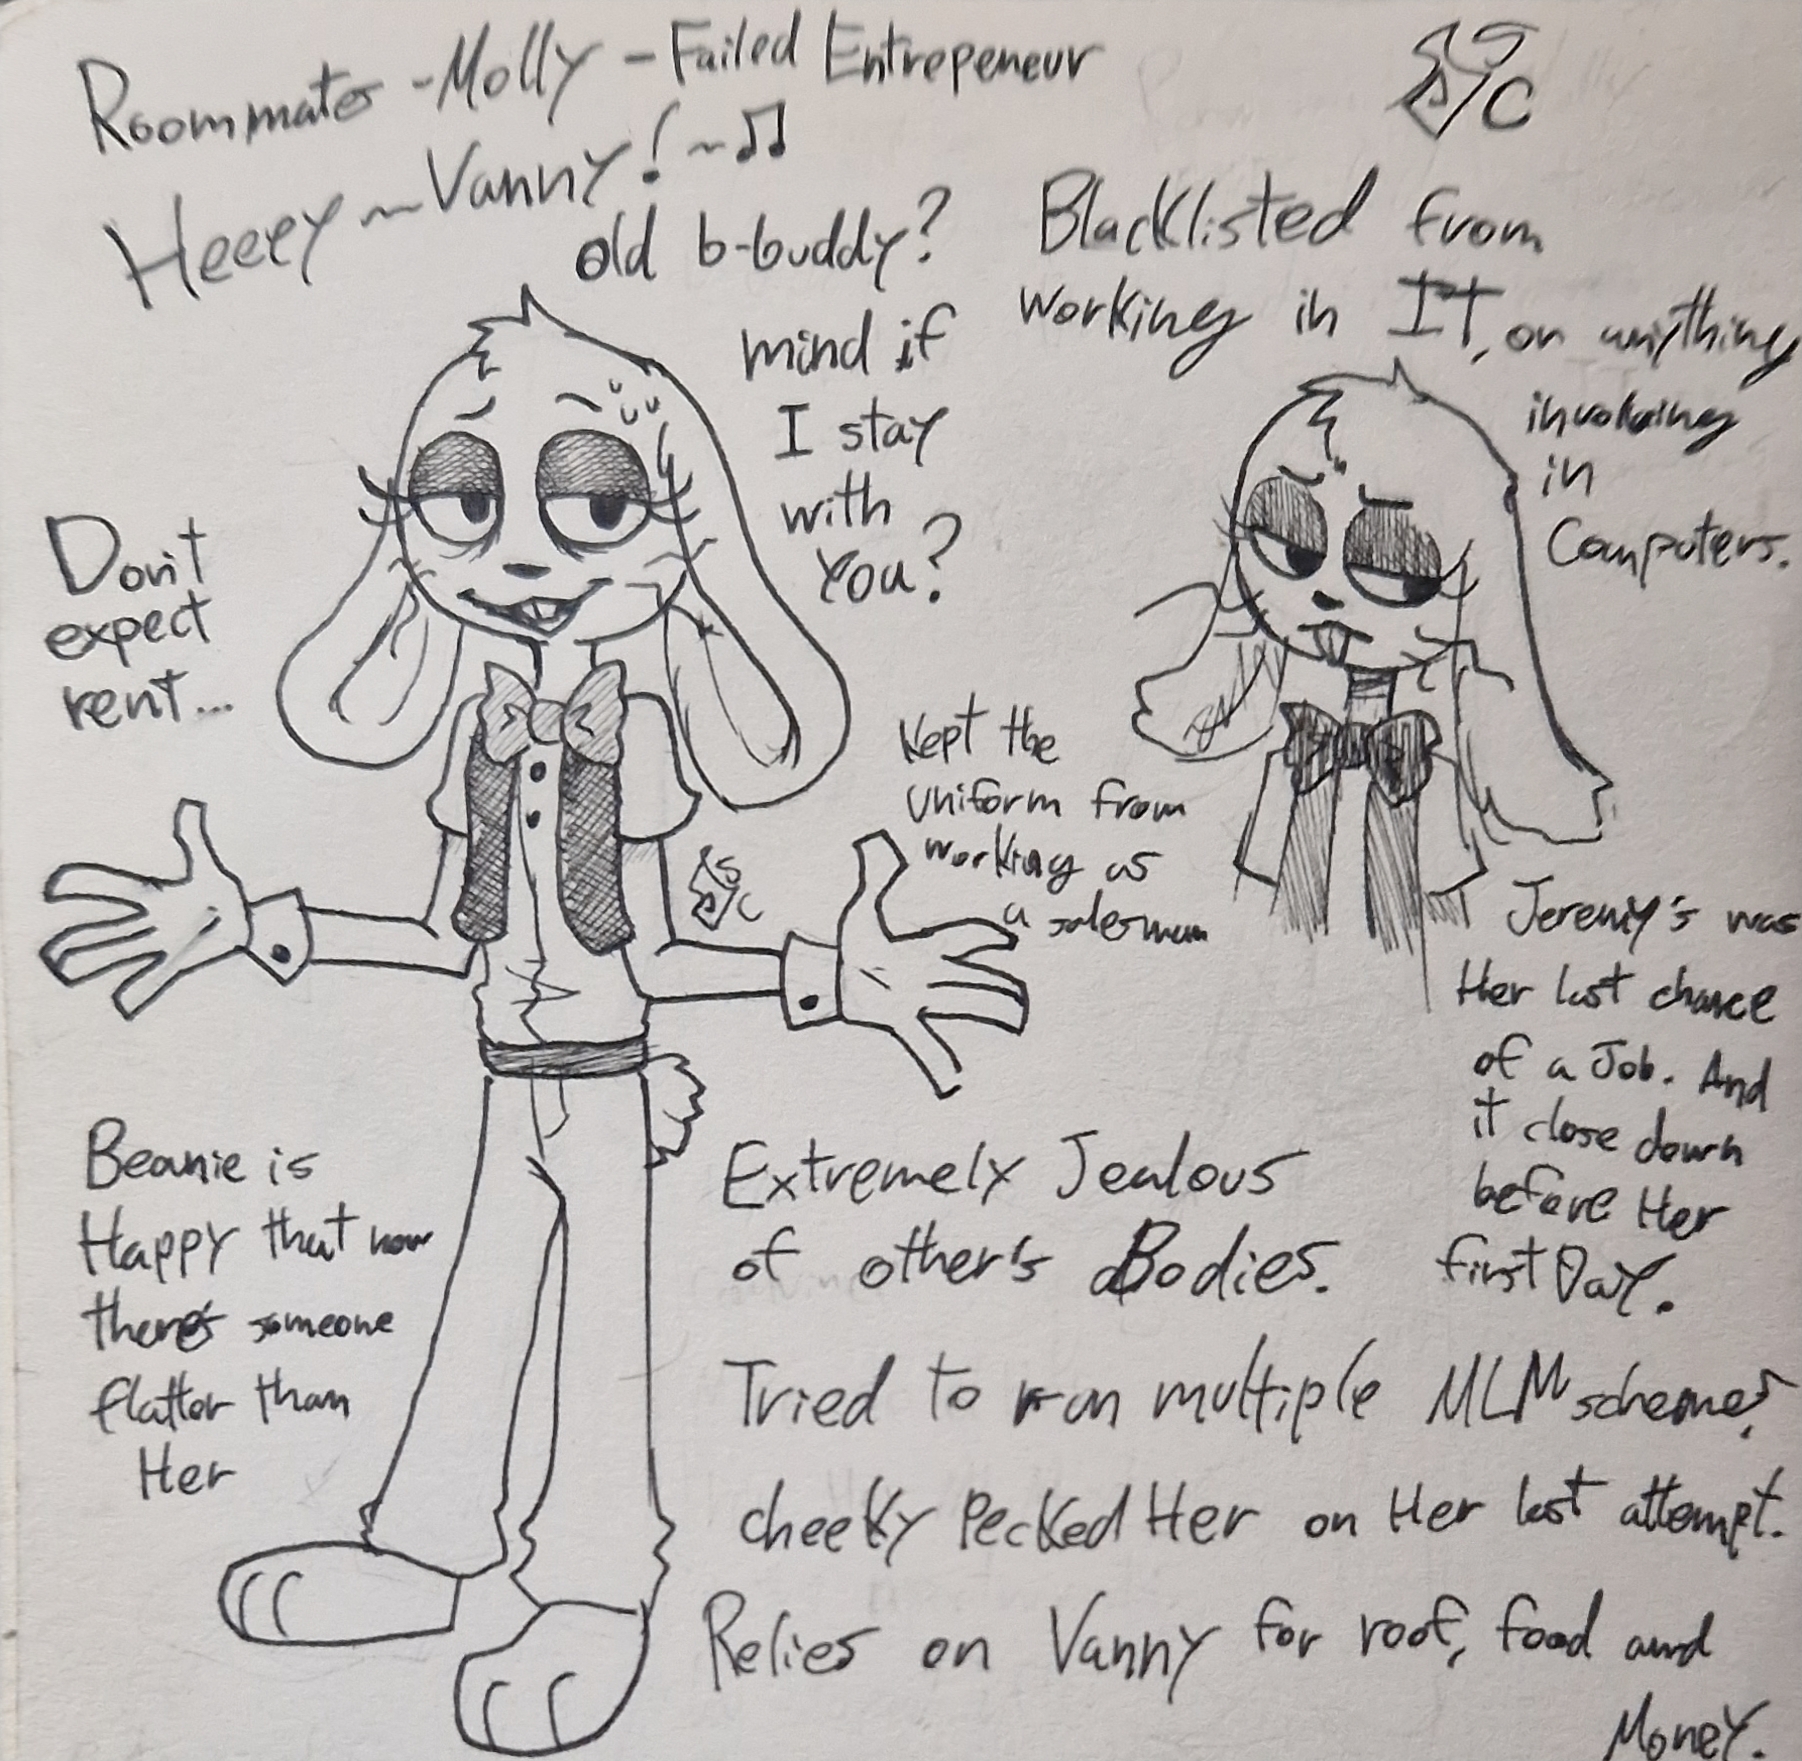 Roommate - Molly - Failed Entrepeneur
Heeey~ Vanny! ~♫
old b-buddy?
mind if
I stay
with
you?
Don't
expect
rent...
Blacklisted from
working in IT, or anything
involving
in
Computers.
Kept the
uniform from
working as
a salesman
Jeremy's was
Her last chance
of a Job. And
it close down
before Her
first Day.
Beanie is
Happy that now
there's someone
flatter than
Her
Extremely Jealous
of other's Bodies.
Tried to run multiple MLM schemes,
cheeky Pecked Her on Her last attempt.
Relies on Vanny for roof, food and
Money.